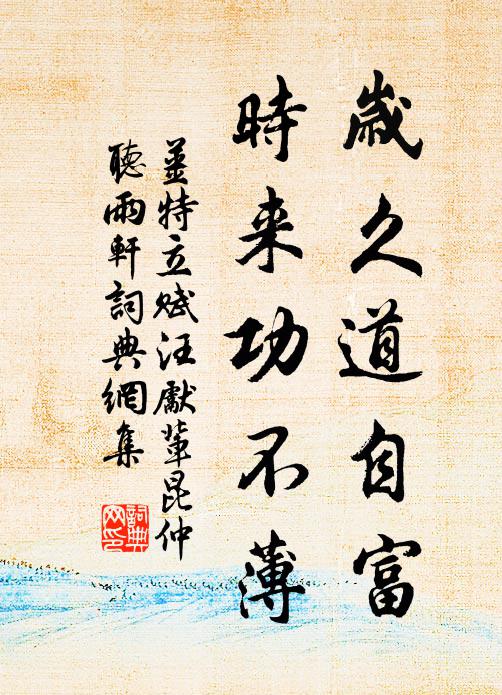 歲久道自富
時来功不薄
姜特立賦汪獻輩昆仲
聽雨軒詞典網集
詞典
网印